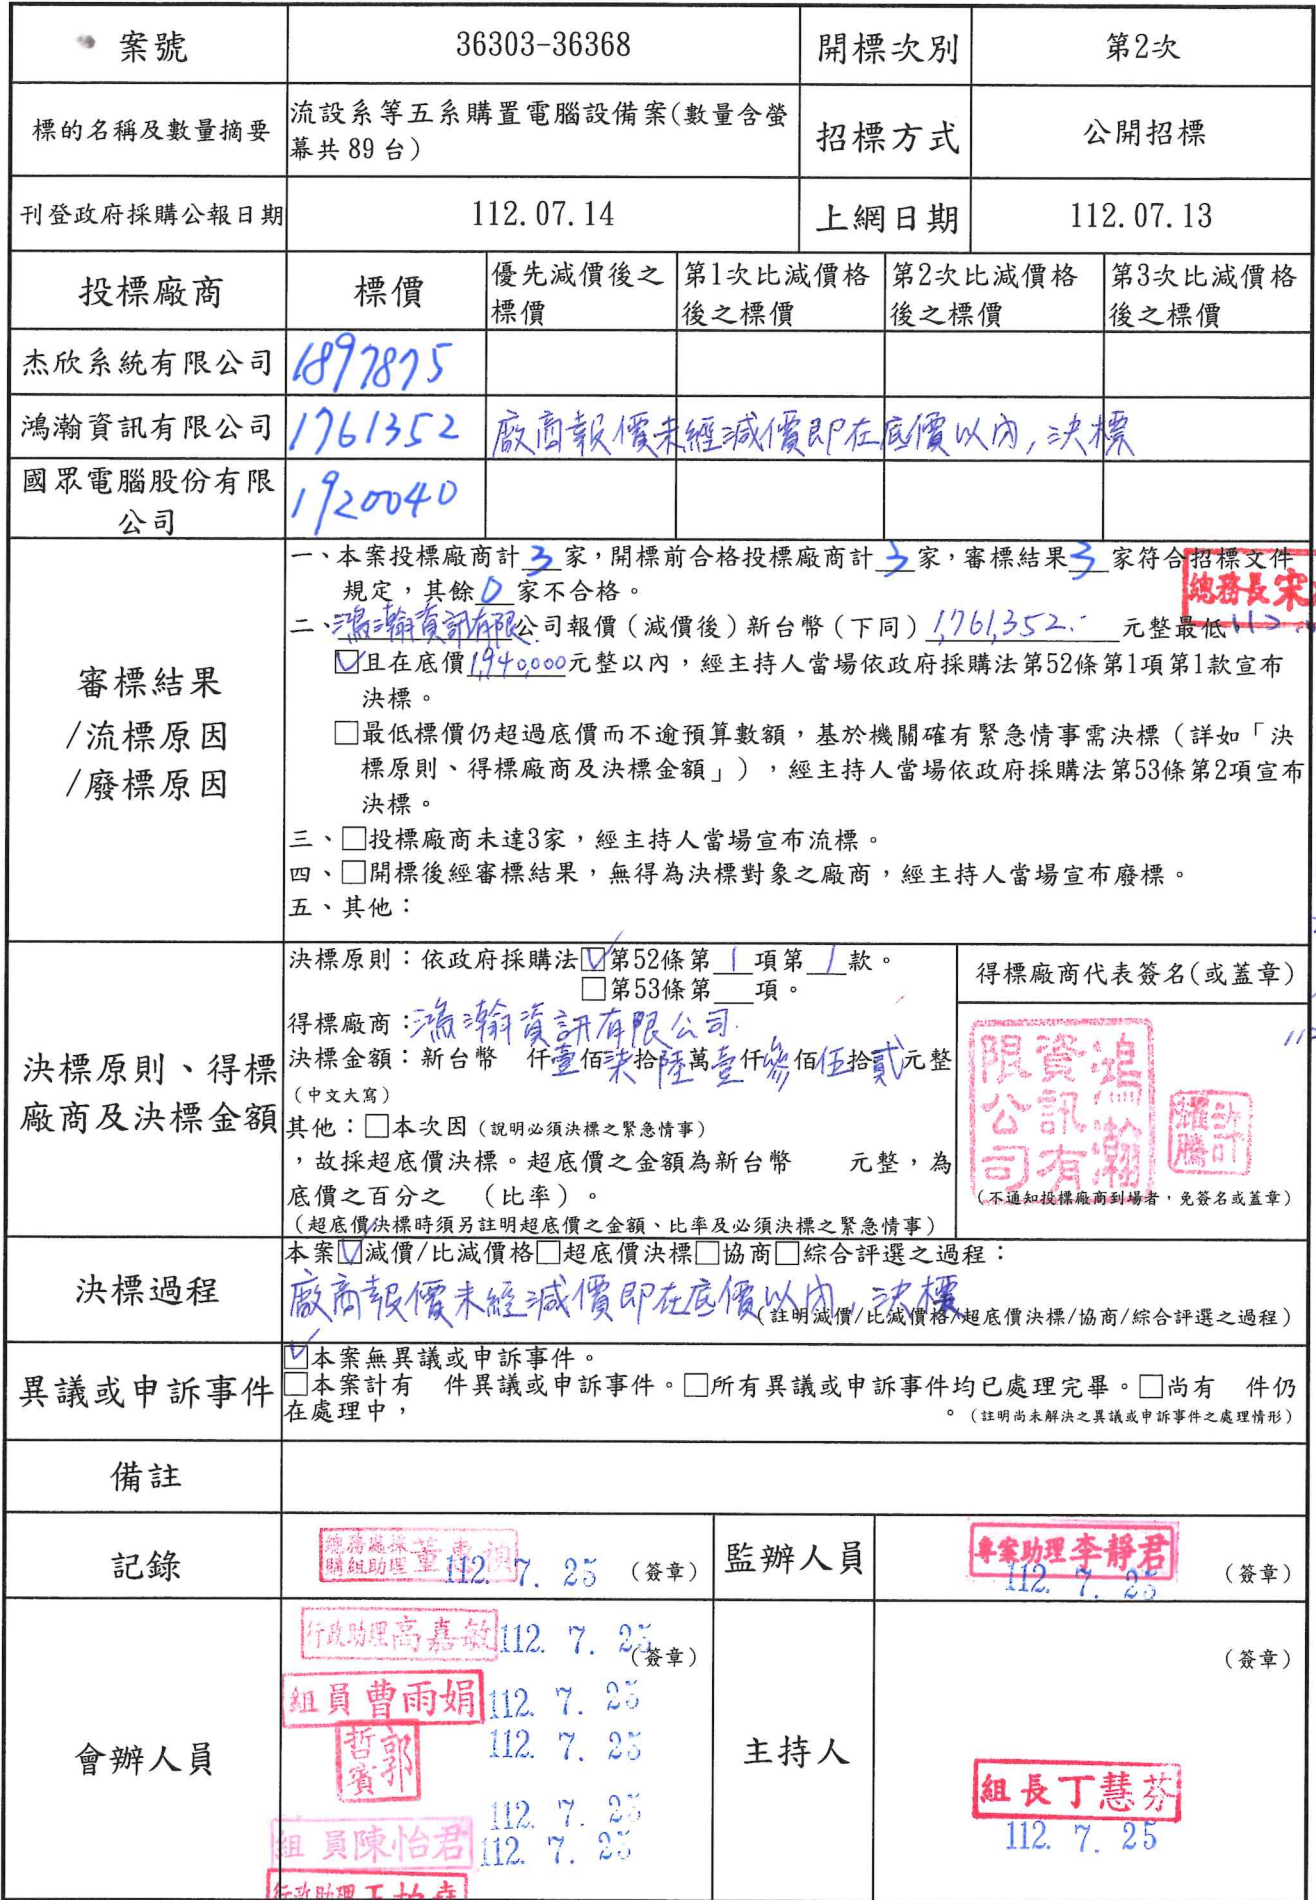 案號 36303-36368 開標次別 第2次
標的名稱及數量摘要 流設系等五系購置電腦設備案(數量含螢
幕共 89 台) 招標方式 公開招標
刊登政府採購公報日期 112.07.14 上網日期 112.07.13
投標廠商 標價 優先減價後之
標價 第1次比減價格
後之標價 第2次比減價格
後之標價 第3次比減價格
後之標價
杰欣系統有限公司 1897875
鴻瀚資訊有限公司 1761352 廠商報價未經減價即在底價以內,決標
國眾電腦股份有限
公司 1920040
審標結果
/流標原因
/廢標原因
一、本案投標廠商計 3 家,開標前合格投標廠商計 3 家,審標結果 3 家符合招標文件
規定,其餘 0 家不合格。
總務長宋
二、鴻瀚資訊有限公司報價(減價後)新台幣(下同)1,761,352.- 元整最低
☑且在底價1,940,000元整以內,經主持人當場依政府採購法第52條第1項第1款宣布
決標。
□最低標價仍超過底價而不逾預算數額,基於機關確有緊急情事需決標(詳如「決
標原則、得標廠商及決標金額」),經主持人當場依政府採購法第53條第2項宣布
決標。
三、□投標廠商未達3家,經主持人當場宣布流標。
四、□開標後經審標結果,無得為決標對象之廠商,經主持人當場宣布廢標。
五、其他:
決標原則、得標
廠商及決標金額
決標原則:依政府採購法☑第52條第 1 項第 1 款。
□第53條第 項。
得標廠商:鴻瀚資訊有限公司.
決標金額:新台幣 仟壹佰柒拾陸萬壹仟參佰伍拾貳元整
(中文大寫)
其他:□本次因(說明必須決標之緊急情事)
,故採超底價決標。超底價之金額為新台幣 元整,為
底價之百分之 (比率)。
(超底價決標時須另註明超底價之金額、比率及必須決標之緊急情事)
得標廠商代表簽名(或蓋章)
鴻瀚資訊有限公司
許耀騰
(不通知投標廠商到場者,免簽名或蓋章)
決標過程
本案☑減價/比減價格□超底價決標□協商□綜合評選之過程:
廠商報價未經減價即在底價以內,決標
(註明減價/比減價格/超底價決標/協商/綜合評選之過程)
異議或申訴事件
☑本案無異議或申訴事件。
□本案計有 件異議或申訴事件。□所有異議或申訴事件均已處理完畢。□尚有 件仍
在處理中, 。(註明尚未解決之異議或申訴事件之處理情形)
備註
記錄 總務處採
購組助理 董惠 112. 7. 25 (簽章)
監辦人員 專案助理李靜君 112. 7. 25 (簽章)
會辦人員
行政助理高嘉敏 112. 7. 25 (簽章)
組員曹雨娟 112. 7. 25
郭哲賓 112. 7. 25
112. 7. 25
組員陳怡君 112. 7. 25
行政助理王
主持人 (簽章)
組長丁慧芬
112. 7. 25